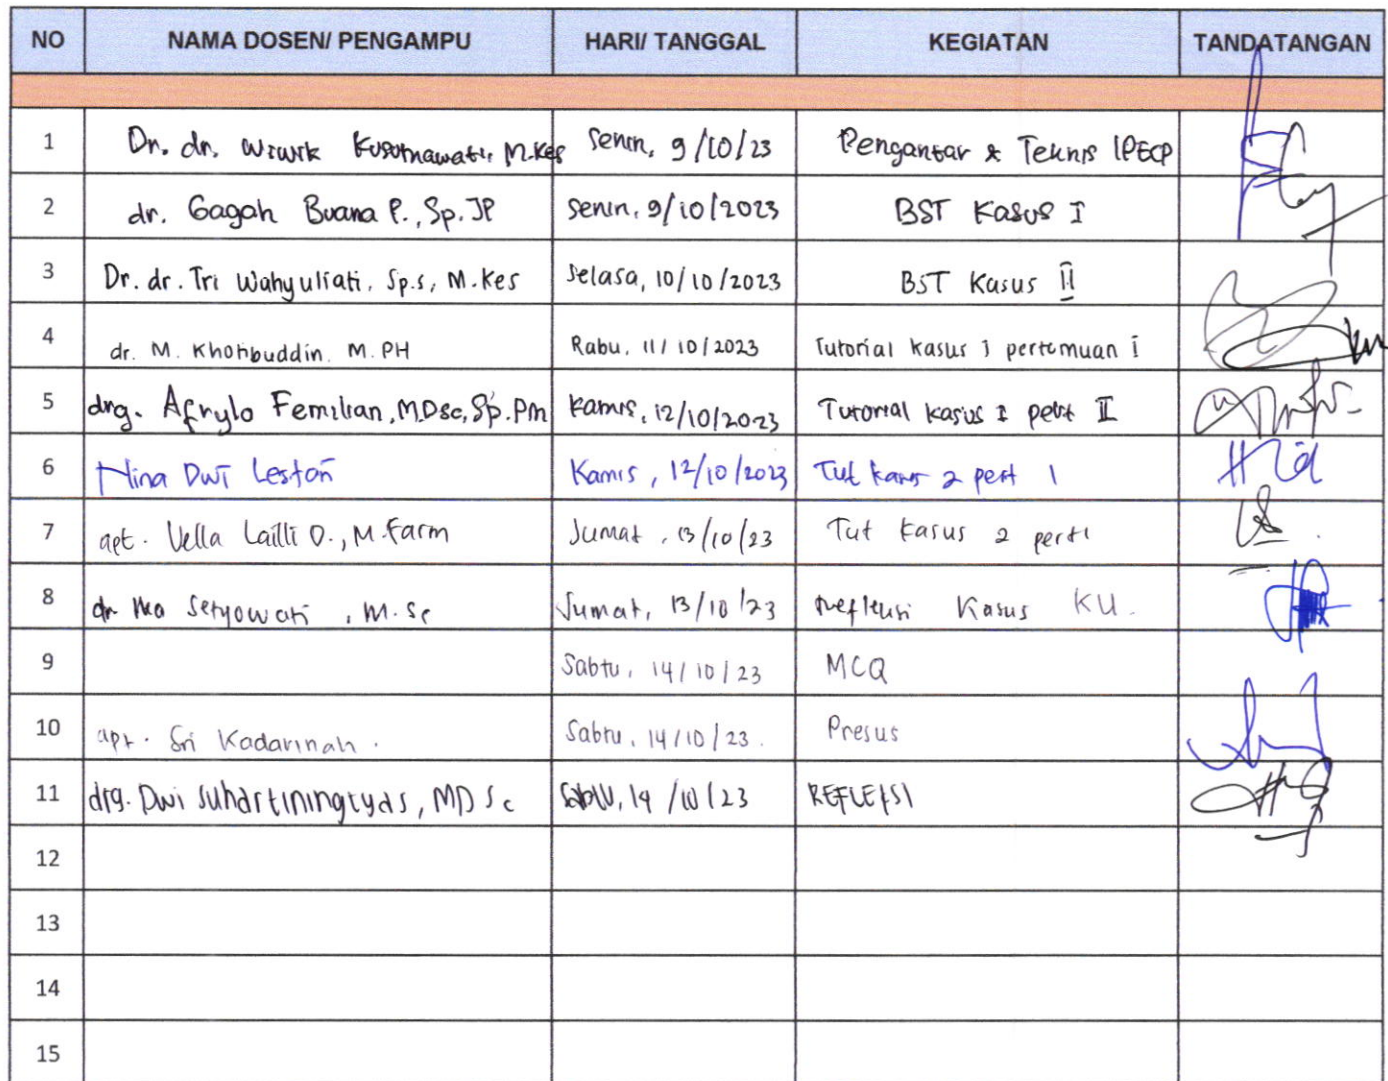 NO NAMA DOSEN/ PENGAMPU HARI/ TANGGAL KEGIATAN TANDATANGAN
1 Dr. dr. Wiwik Kusumawati, M.Kes Senin, 9/10/23 Pengantar & Teknis IPECP
2 dr. Gagah Buana P., Sp.JP Senin, 9/10/2023 BST Kasus I
3 Dr. dr. Tri Wahyuliati, Sp.s, M.Kes Selasa, 10/10/2023 BST Kasus II
4 dr. M. Khotibuddin. M.PH Rabu, 11/10/2023 Tutorial kasus 1 pertemuan I
5 drg. Afrylo Femilian, MDsc, Sp.PM Kamis, 12/10/2023 Tutorial kasus I II
6 Nina Dwi Lestari Kamis, 12/10/2023 Tut kasus 2 pert 1
7 apt. Vella Lailli D., M.Farm Jumat, 13/10/23 Tut Kasus 2
8 dr Setyowati, M.Sc Jumat, 13/10/23 Refleksi Kasus KU.
9 Sabtu, 14/10/23 MCQ
10 apt. Sri Kadarinah. Sabtu, 14/10/23. Presus
11 drg. Dwi Suhartiningtyas, MDSc Sabtu, 14/10/23 REFLEKSI
12
13
14
15